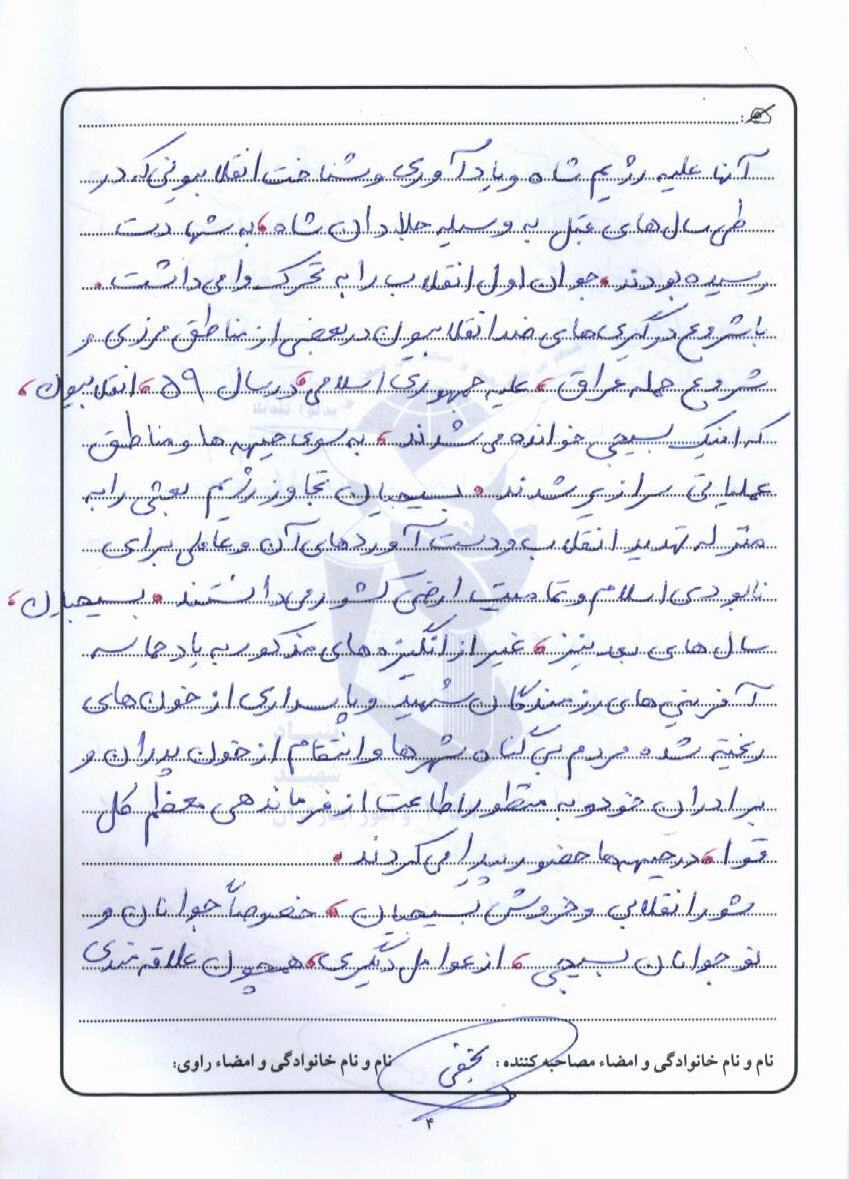 آنها علیه رژیم شاه و یادآوری و شناخت انقلابیونی که در
طی سال‌های قبل به وسیله جلادان شاه، به شهادت
رسیده بودند، جوان اول انقلاب را به تحرک وا می‌داشت.
با شروع درگیری‌های ضد انقلابیون در بعضی از مناطق مرزی و
شروع حمله عراق، علیه جمهوری اسلامی، در سال ۵۹، انقلابیون،
که اینک بسیجی خوانده می‌شدند، به سوی جبهه ها و مناطق
عملیاتی سرازیر شدند. بسیجیان تجاوز رژیم بعثی را به
منزله تهدید انقلاب و دست آوردهای آن و عاملی برای
نابودی اسلام و تمامیت ارضی کشور می دانستند. بسیجیان،
سال های بعد نیز، غیر از انگیزه های مذکور به یاد حماسه
آفرینی‌های رزمندگان شهید و پاسداری از خون های
ریخته شده مردم بی‌گناه شهرها و انتقام از خون پدران و
برادران خود و به منظور اطاعت از فرماندهی معظم کل
قوا، در جبهه ها حضور پیدا می کردند.
شور انقلابی و خروش بسیجیان، خصوصاً جوانان و
نوجوانان بسیجی، از عوامل دیگری، همچون علاقه مندی
نام و نام خانوادگی و امضاء مصاحبه کننده: نجفی نام و نام خانوادگی و امضاء راوی:
۴